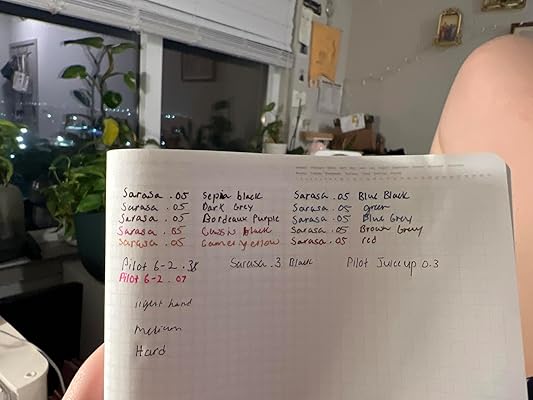 Sarasa .05 Sepia black
Sarasa .05 Dark Grey
Sarasa .05 Bordeaux Purple
Sarasa .05 Black
Sarasa .05
Sarasa .05 Blue Black
Sarasa .05 Green
Sarasa .05 Blue Grey
Sarasa .05 Brown Grey
Sarasa .05 red
Pilot G-2 .38
Sarasa .3 Black
Pilot Juice up 0.3
Pilot G-2 .07
light hand
Medium
Hard